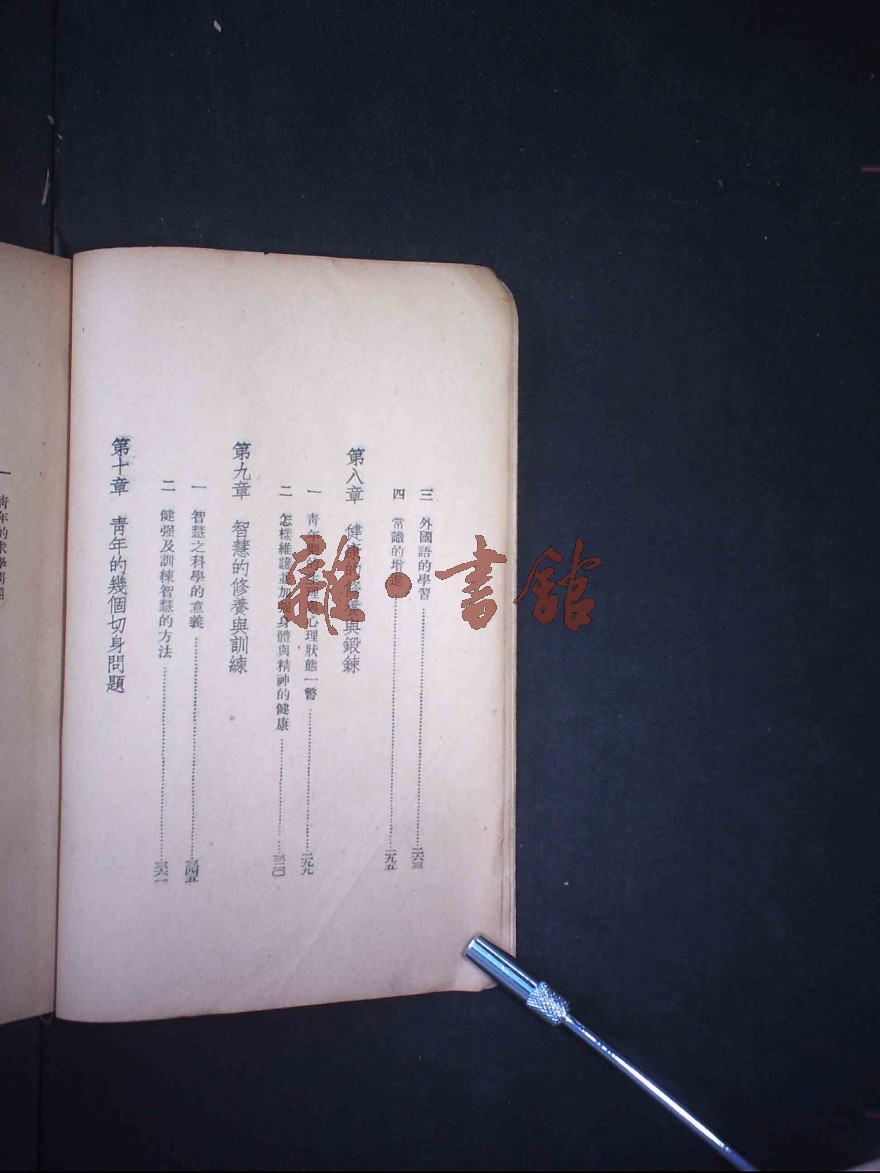 三　外國語的學習……二六三
四　常識的增進……二九五
第八章　健康的修養與鍛鍊
一　青年期的生理與心理狀態一瞥……二九九
二　怎樣維護並加強身體與精神的健康……三二〇
第九章　智慧的修養與訓練
一　智慧之科學的意義……三四五
二　健强及訓練智慧的方法……三六一
第十章　靑年的幾個切身問題
一　青年的求學問題
雜·書館